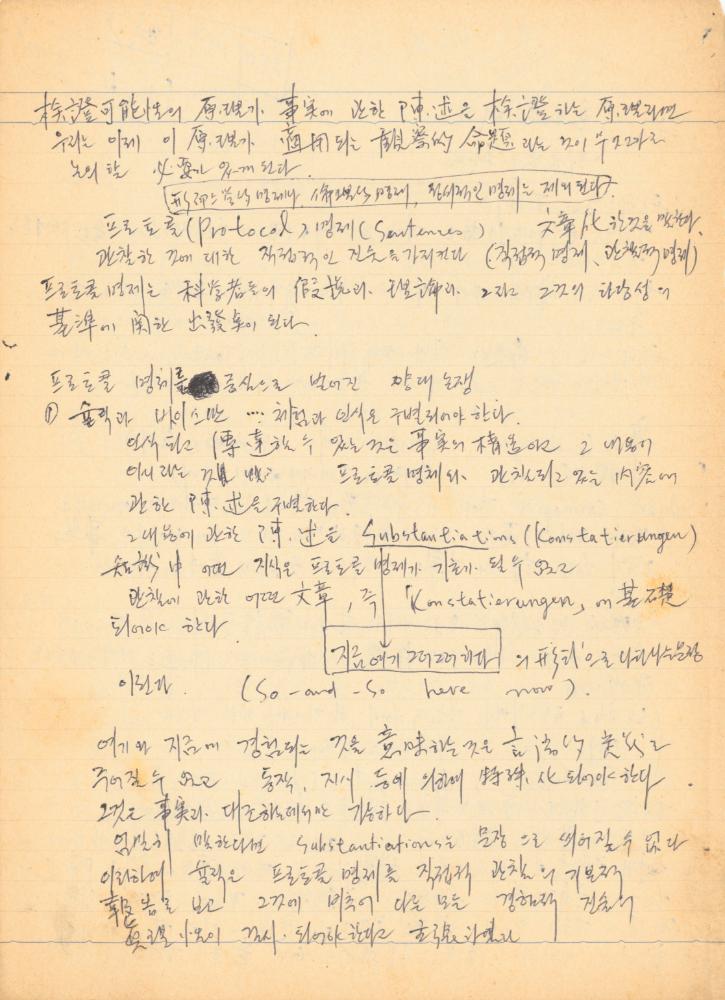 檢證可能性의 原理가 事實에 관한 陳述을 檢證하는 原理라면
우리는 이제 이 原理가 適用되는 觀察的 命題라는 것이 무엇인가
논의할 必要가 있게 된다.
명제나 倫理的 명제, 명제는 제외된다.
프로토콜(Protocol) 명제(Sentences) 文章化한 것을 말한다.
관찰한 것에 대한 직접적인 진술을 가리킨다 (직접적 명제, 관찰적 명제)
프로토콜 명제는 科学者들의 假說과 理論과 그리고 그것의 타당성의
基準에 関한 出發点이 된다.
프로토콜 명제를 중심으로 벌어진 양대 논쟁
① 슐릭과 바이스만 … 체험과 인식은 구별되어야 한다.
인식되고 傳達할 수 있는 것은 事実의 構造이고 그 내용이
아니라는 프로토콜 명제와 관찰되고 있는 内容에
관한 陳述을 구별한다.
그 내용에 관한 陳述을 Substantiations (Konstatierungen)
知識中 어떤 지식은 프로토콜 명제가 기초가 될 수 없고
관찰에 관한 어떤 文章, 즉 「Konstatierungen」이 基石礎
되어야 한다
지금 여기 그러그러하다 의 形式으로 나타나는 문장
이란다. (So-and-So here now).
여기와 지금에 경험되는 것을 意味하는 것은 言語的 定義로
주어질 수 없고 동작, 지시 등에 의하여 特殊化 되어야 한다.
그것은 事実과 대조하는데서만 가능하다.
엄밀히 말한다면 Substantiations는 문장으로 씌어질 수 없다
이리하여 슐릭은 프로토콜 명제를 직접적 관찰의 기본적
報告로 보고 그것에 비추어 다른 모든 경험적 진술의
眞理性이 검사되어야 한다고